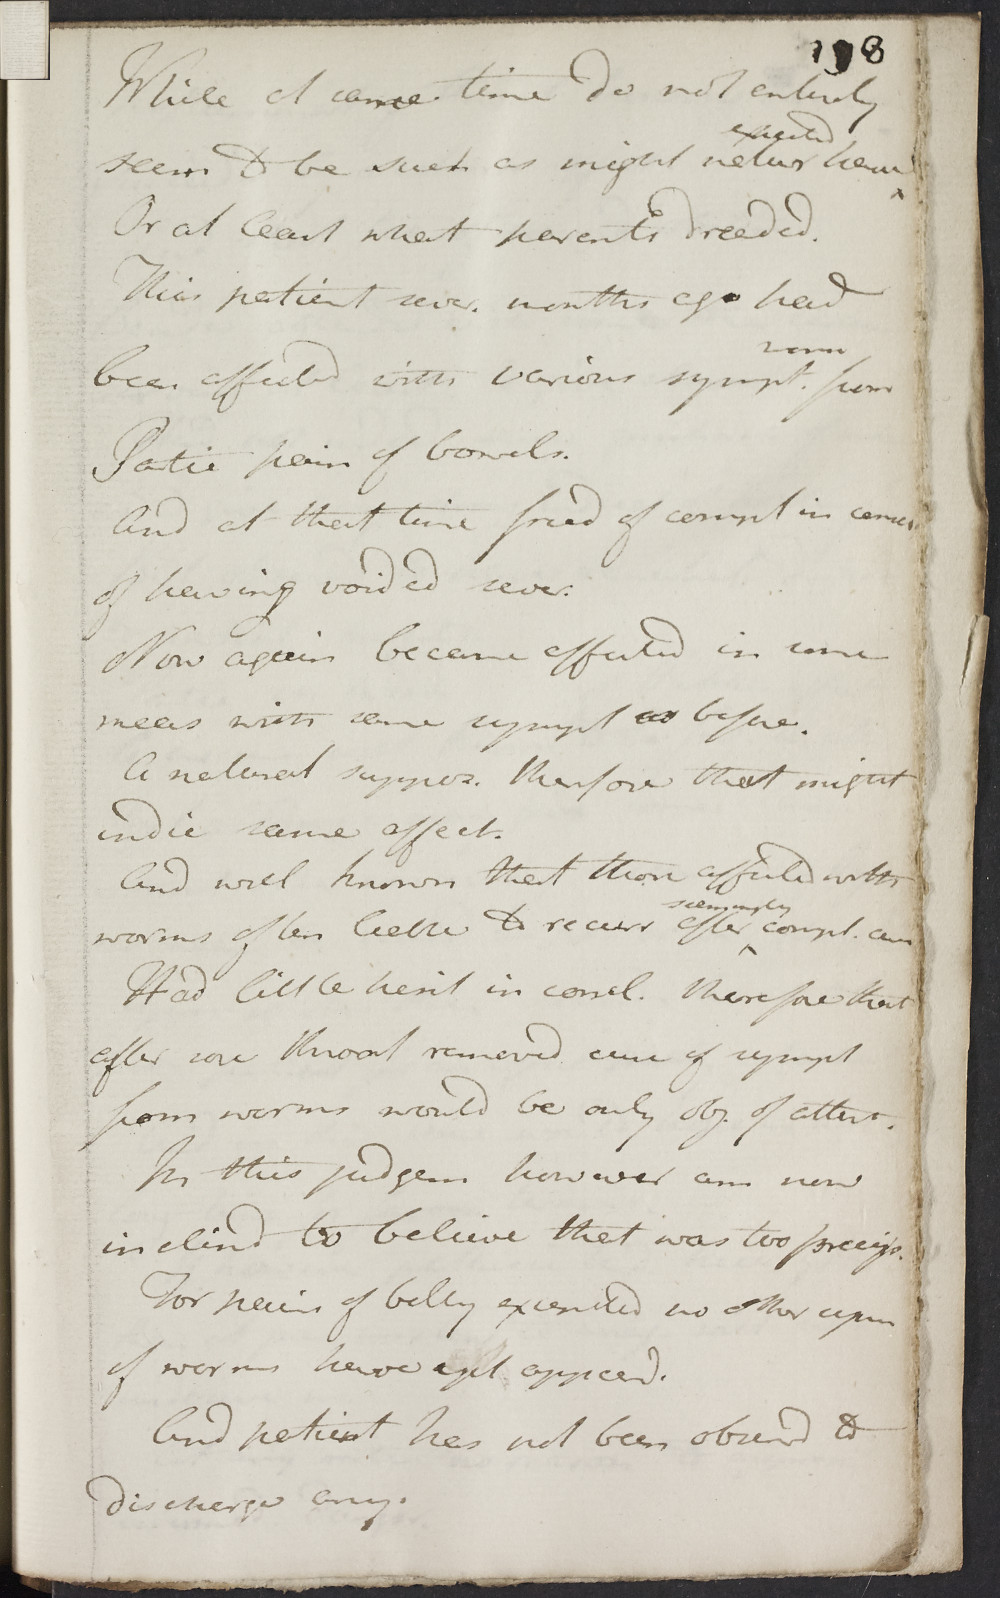 198
While at same time do not entirely
seem to be such as might natur expected have
Or at least what parents dreeded.
This patient sever. months ago had
been affected with various sympt. some from
Partic pain of bowels.
And at that time freed of compl in conseq
of having voided sever.
Now again became affected in some
meas with same sympt as before.
A natural suppos. therefore that might
indic same affect.
And well known that those affected with
worms often liable to recurr after seemingly compl. cure
Had little hesit in concl. therefore that
after sore throat removed cure of sympt
from worms would be only obj. of attent.
In this judgem however am now
inclind to believe that was too precip.
For pain of belly excepted no other sym
of worms have yet appeard.
And patient has not been observd to
discharge any.